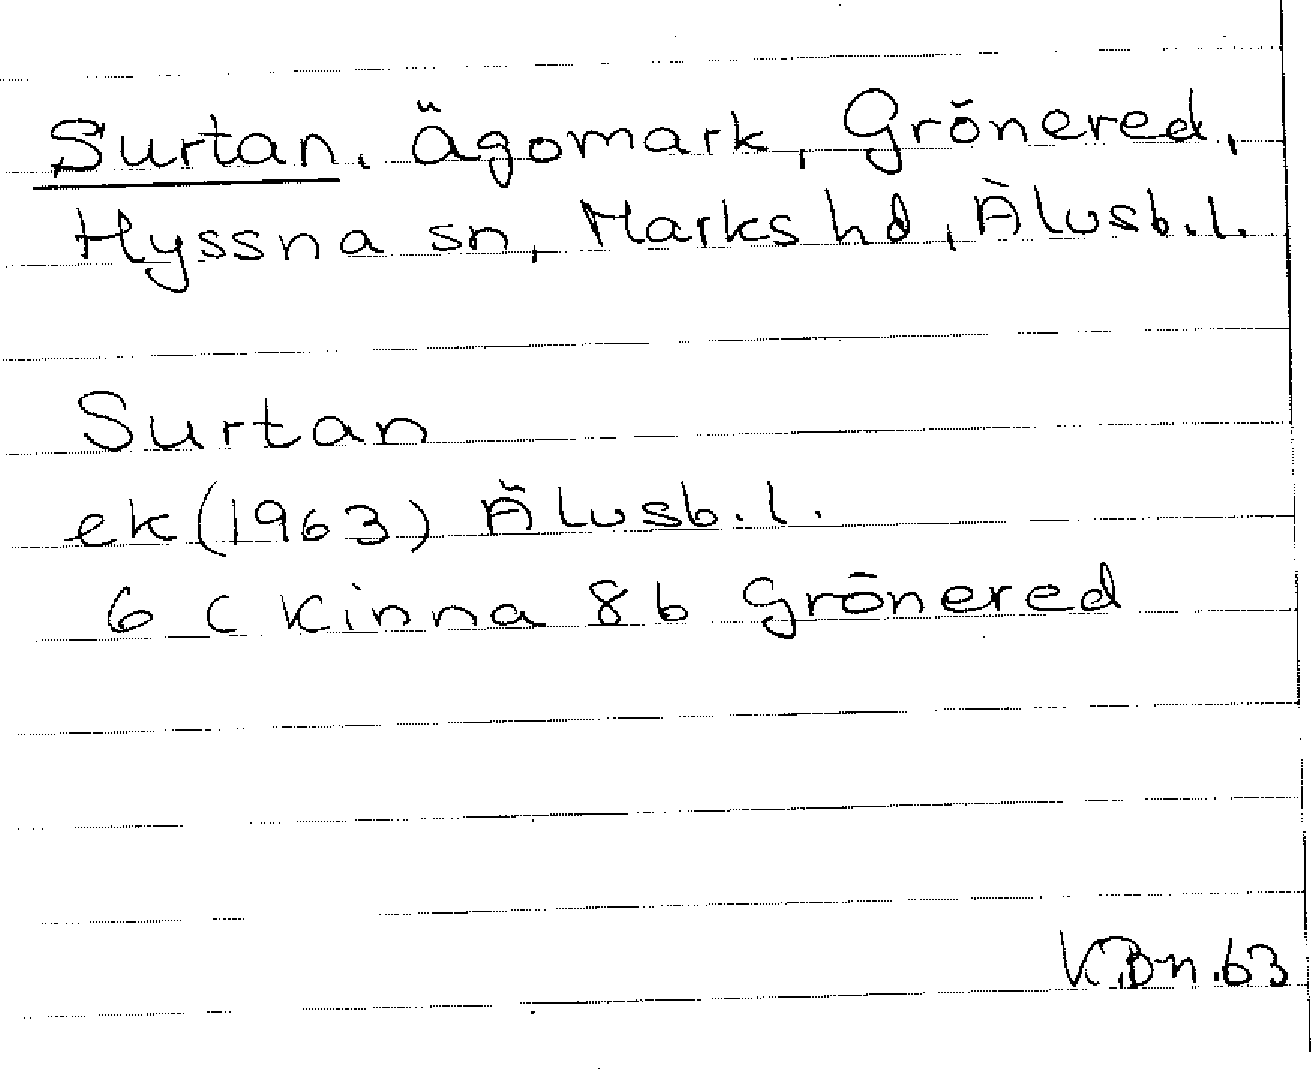 Surtan, ägomark, Grönered,
Hyssna sn, Marks hd, Älvsb.l.
Surtan
ek (1963) Älvsb.l.
6 C Kinna 8b Grönered
63